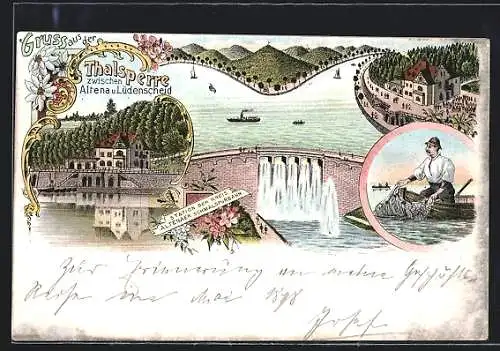 Gruss aus der
Thalsperre
zwischen
Altena u. Lüdenscheid
STATION DER KREIS
ALTENAER SCHMALSPURBAHN
Zur Erinnerung an meine Geschäfts
Reise im Mai 1898
Josef